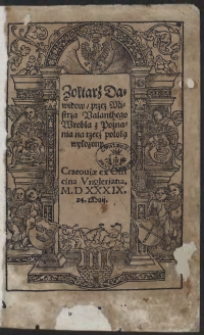 Żołtarz Da-
widow / przez Mi-
strza Valanthego
Wrobla z Pozna-
nia na rzecz polską
wyłożony.
Cracoviæ ex Offi-
cina Vngleriana.
M. D XXXIX.